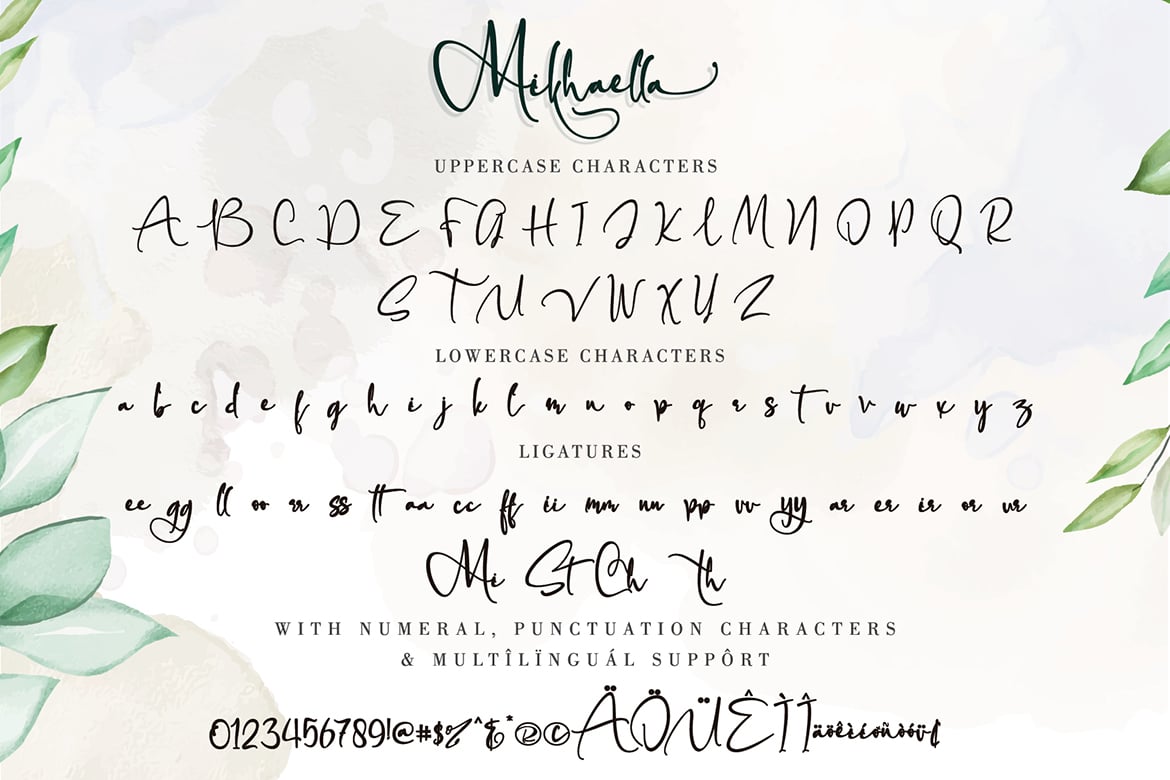 Mikhaella
UPPERCASE CHARACTERS
A B C D E F G H I J K L M N O P Q R
S T U V W X Y Z
LOWERCASE CHARACTERS
a b c d e f g h i j k l m n o p q r s t u v w x y z
LIGATURES
ee gg ll oo rr ss tt aa cc ff ii mm nn pp vv yy ar er ir or ur
Mi St Ch Th
WITH NUMERAL, PUNCTUATION CHARACTERS
& MULTÎLÏNGUÁL SUPPÔRT
0123456789!@#$%^&*®©ÄÖÜÊÌÎäöêìéøñòóü¢